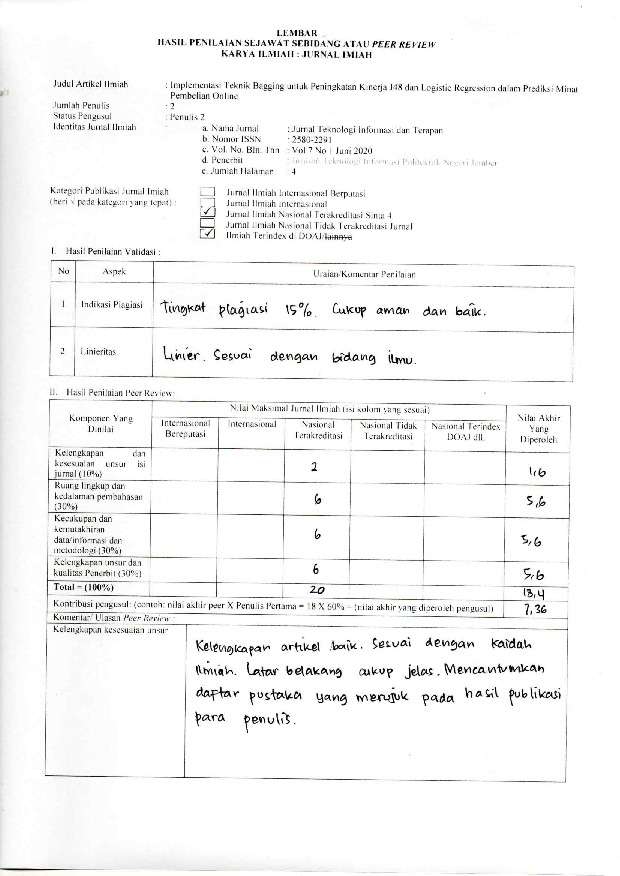 LEMBAR
HASIL PENILAIAN SEJAWAT SEBIDANG ATAU PEER REVIEW
KARYA ILMIAH : JURNAL IMIAH
Judul Artikel Ilmiah : Implementasi Teknik Bagging untuk Peningkatan Kinerja J48 dan Logistic Regression dalam Prediksi Minat
Pembelian Online
Jumlah Penulis : 2
Status Pengusul : Penulis 2
Identitas Jurnal Ilmiah
a. Nama Jurnal : Jurnal Teknologi Informasi dan Terapan
b. Nomor ISSN : 2580-2291
c. Vol. No. Bln. Thn : Vol 7 No 1 Juni 2020
d. Penerbit : Jurusan Teknologi Informasi Politeknik Negeri Jember
e. Jumlah Halaman : 4
Kategori Publikasi Jurnal Imiah
(beri √ pada kategori yang tepat) :
Jurnal Ilmiah Internasional Berputasi
Jurnal Ilmiah Internasional
✓ Jurnal Ilmiah Nasional Terakreditasi Sinta 4
Jurnal Ilmiah Nasional Tidak Terakreditasi Jurnal
✓ Ilmiah Terindex di DOAJ/lainnya
I. Hasil Penilaian Validasi :
No Aspek Uraian/Komentar Penilaian
1 Indikasi Plagiasi Tingkat plagiasi 15%. Cukup aman dan baik.
2 Linieritas Linier. Sesuai dengan bidang ilmu.
II. Hasil Penilaian Peer Review:
Komponen Yang
Dinilai
Nilai Maksimal Jurnal Ilmiah (isi kolom yang sesuai)
Nilai Akhir
Yang
Diperoleh
Internasional
Bereputasi
Internasional
Nasional
Terakreditasi
Nasional Tidak
Terakreditasi
Nasional Terindex
DOAJ dll.
Kelengkapan dan
kesesuaian unsur isi
jurnal (10%) 2 1,6
Ruang lingkup dan
kedalaman pembahasan
(30%) 6 5,6
Kecukupan dan
kemutakhiran
data/informasi dan
metodologi (30%) 6 5,6
Kelengkapan unsur dan
kualitas Penerbit (30%) 6 5,6
Total = (100%) 20 18,4
Kontribusi pengusul: (contoh: nilai akhir peer X Penulis Pertama = 18 X 60% = (nilai akhir yang diperoleh pengusul) 7,36
Komentar/ Ulasan Peer Review :
Kelengkapan kesesuaian unsur
Kelengkapan artikel baik. Sesuai dengan kaidah
Ilmiah. Latar belakang cukup jelas. Mencantumkan
daftar pustaka yang merujuk pada hasil publikasi
para penulis.